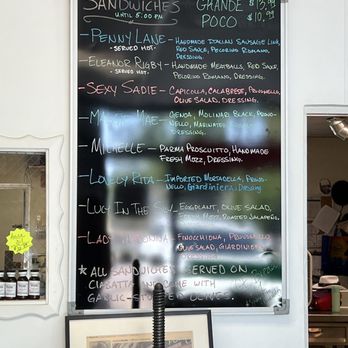 SANDWICHES GRANDE $13.99
UNTIL 5:00 PM POCO $10.99
- PENNY LANE - HANDMADE ITALIAN SAUSAGE LINK,
- SERVED HOT - RED SAUCE, PECORINO ROMANO,
DRESSING.
- ELEANOR RIGBY - HANDMADE MEATBALLS, RED SAUCE,
- SERVED HOT - PECORINO ROMANO, DRESSING.
- SEXY SADIE - CAPICOLLA, CALABRESE, PROVOLONE,
OLIVE SALAD, DRESSING.
MAE - GENOA, MOLINARI BLACK, PROVO-
DRESSING.
- MICHELLE - PARMA PROSCIUTTO, HANDMADE
FRESH MOZZ, DRESSING.
- LOVELY RITA - IMPORTED MORTADELLA, PROVO-
NELLO, GIARDINIERA, DRESSING
- LUCY IN THE SKY EGGPLANT, OLIVE SALAD,
MOZZ, ROASTED JALAPEÑO,
LADY MADONNA FINOCCHIONA,
OLIVE SALAD, GIARDINIERA,
DRESSING
* ALL SANDWICHES SERVED ON
CIABATTA COME WITH
GARLIC-STUFFED OLIVES.